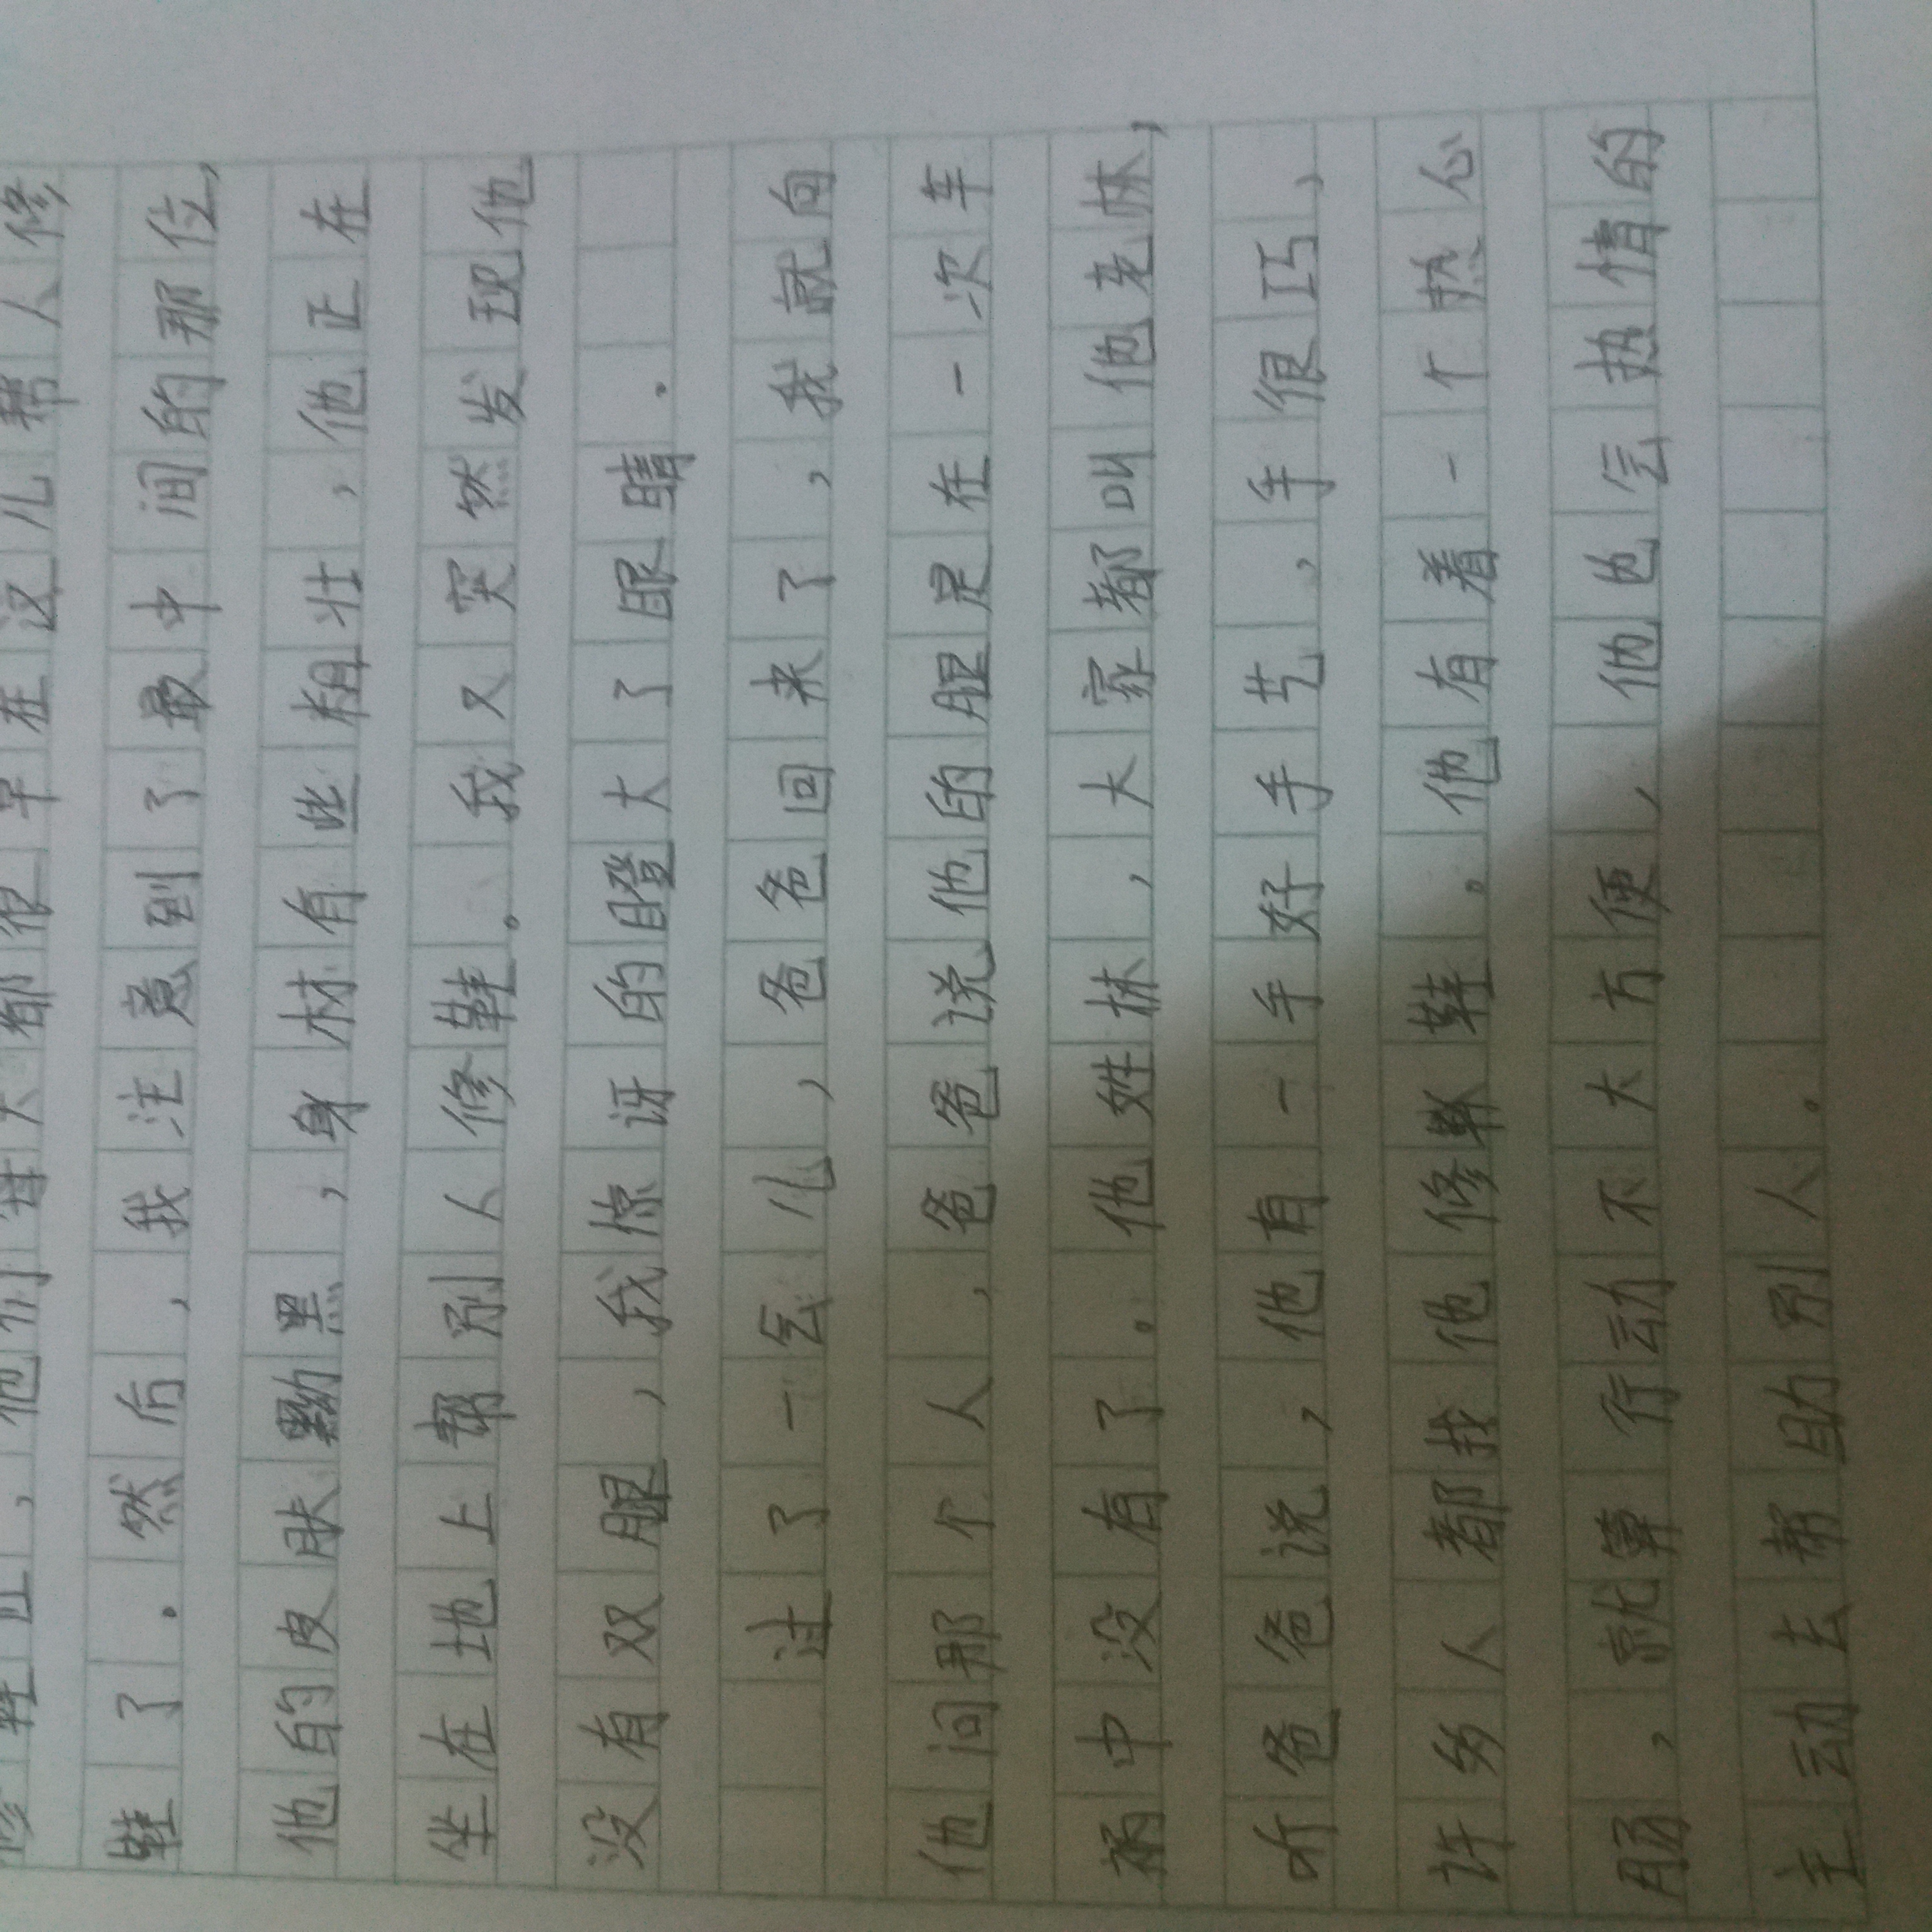 修鞋匠，他们每天都很早在这儿帮人修
鞋了.然后，我注意到了最中间的那位，
他的皮肤黝黑，身材有些粗壮，他正在
坐在地上帮别人修鞋。我又突然发现他
没有双腿，我惊讶的瞪大了眼睛.
过了一会儿，爸爸回来了，我就向
他问那个人，爸爸说他的腿是在一次车
祸中没有了。他姓林，大家都叫他老林，
听爸爸说，他有一手好手艺，手很巧，
许多人都找他修鞋。他有着一个热心
肠，就算行动不大方便，他也会热情的
主动去帮助别人.